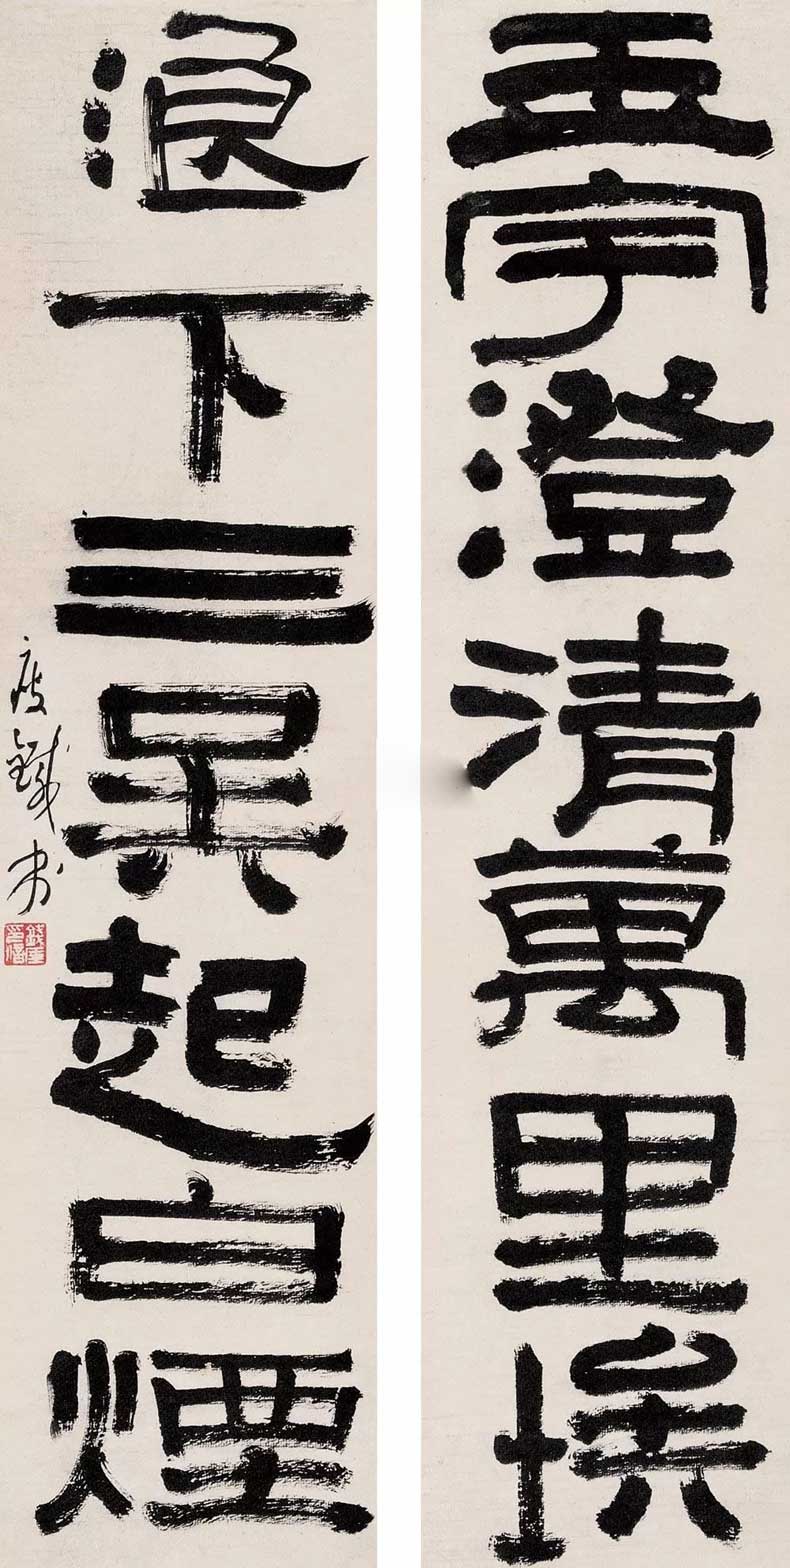 玉宇澄清萬里埃
浪下三吳起白煙
瘦鐵書